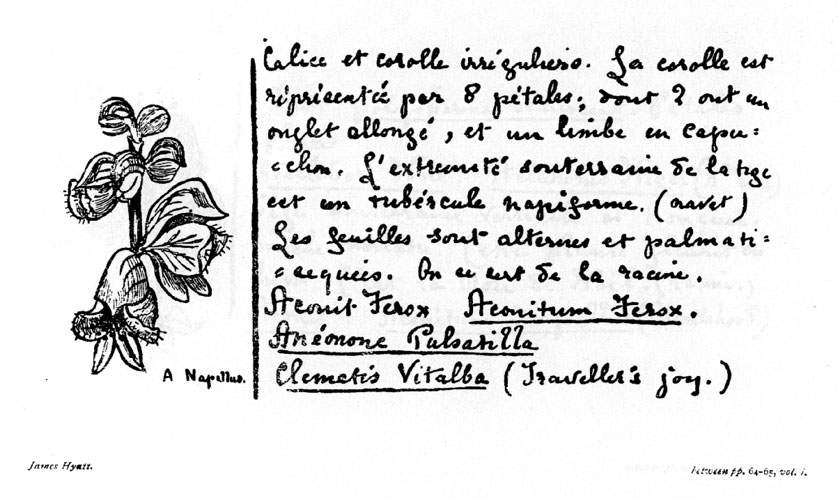 Calice et corolle irréguliers. La corolle est
représentée par 8 pétales; dont 2 ont un
onglet allongé, et un limbe en capu=
=chon. L'extremité souterraine de la tige
est un tubércule napiforme. (navet)
Les feuilles sont alternes et palmati=
=sequées. On se sert de la racine.
Aconit Ferox Aconitum Ferox.
Anéonone Pulsatilla
Clemetis Vitalba (Traveller's joy.)
A Napellus.
James Hyatt.
between pp. 64-65, vol. i.